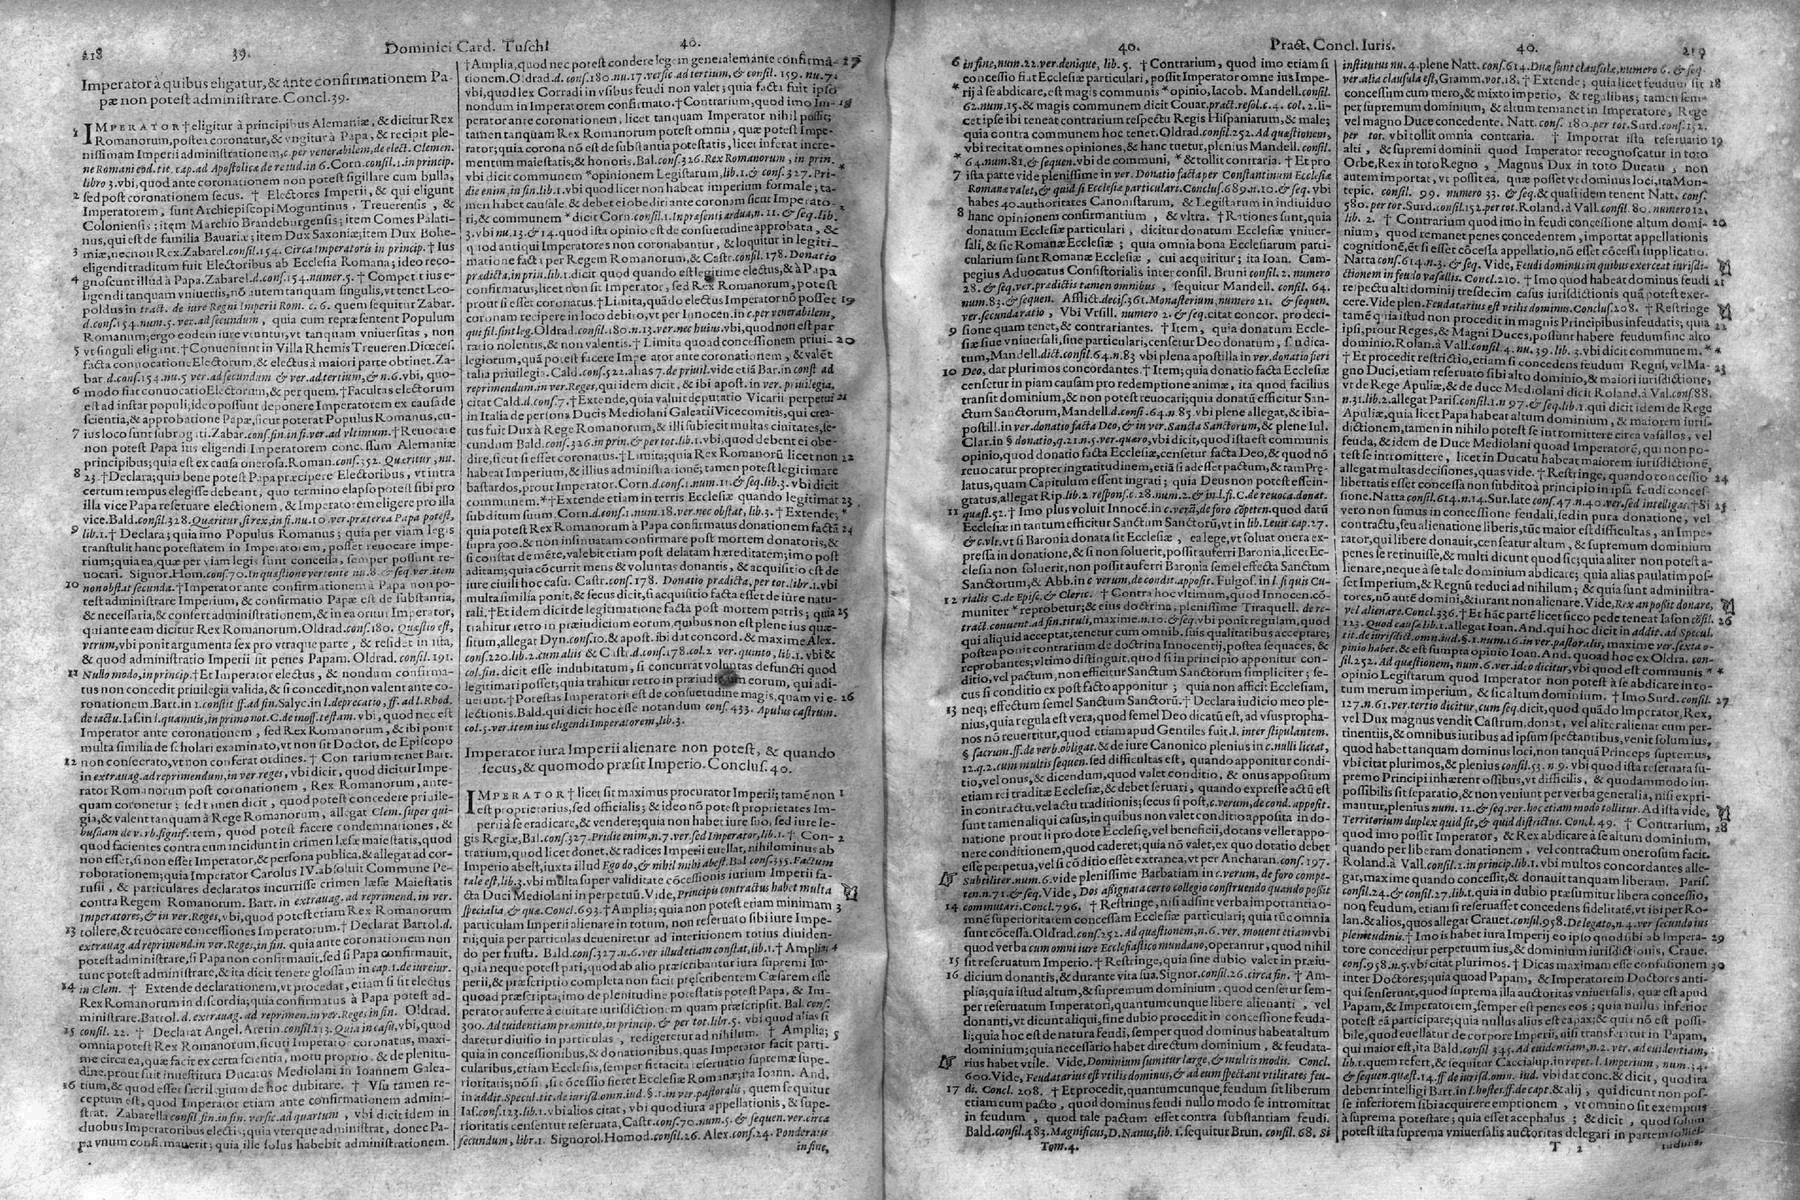 218 39. Dominici Card. Tuschi 40.
Imperator à quibus eligatur, & ante confirmationem Pa-
pæ non potest administrare. Concl. 39.
1 IMPERATOR † eligitur à principibus Alemaniæ, & dicitur Rex
Romanorum, postea coronatur, & vngitur à Papa, & recipit ple-
nissimam Imperij administrationem, c. per venerabilem, de elect. Clemen.
ne Romani eod. tit. cap. ad Apostolicæ de re iud. in 6. Corn. consil. 1. in princip.
libro 3. vbi, quod ante coronationem non potest sigillare cum bulla,
2 sed post coronationem secus. † Electores Imperij, & qui eligunt
Imperatorem, sunt Archiepiscopi Moguntinus, Treuerensis, &
Coloniensis; item Marchio Brandeburgensis; item Comes Palati-
nus, qui est de familia Bauariæ; item Dux Saxoniæ; item Dux Bohe-
3 miæ, necnon Rex. Zabarel. consil. 154. Circa Imperatoris in princip. † Ius
eligendi traditum fuit Electoribus ab Ecclesia Romana; ideo reco-
4 gnoscunt illud à Papa. Zabarel. d. cons. 154. numer. 5. † Competit ius e-
ligendi tanquam vniuersis, nō autem tanquam singulis, vt tenet Leo-
poldus in tract. de iure Regni Imperij Rom. c. 6. quem sequitur Zabar.
d. cons. 154. num. 5. ver. ad secundum, quia cum repræsentent Populum
Romanum; ergo eodem iure vtuntur, vt tanquam vniuersitas, non
5 vt singuli eligant. † Conueniunt in Villa Rhemis Treueren. Diœces.
facta conuocatione Electorum, & electus à maiori parte obtinet. Za-
bar. d. cons. 154. nu. 5 ver. ad secundum & ver. ad tertium, & n. 6. vbi, quo-
6 modo fiat conuocatio Electorum, & per quem. † Facultas electorum
est ad instar populi; ideo possunt deponere Imperatorem ex causa de
scientia, & approbatione Papæ, sicut poterat Populus Romanus, cu-
7 ius loco sunt subrogati. Zabar. cons. fin. in fi. ver. ad vltimum. † Reuocare
non potest Papa ius eligendi Imperatorem concessum Alemaniæ
principibus; quia est ex causa onerosa. Roman. cons. 352. Quæritur, nu.
8 23. † Declara; quia bene potest Papa præcipere Electoribus, vt intra
certum tempus elegisse debeant, quo termino elapso potest sibi pro
illa vice Papa reseruare electionem, & Imperatorem eligere pro illa
vice. Bald. consil. 328. Quæritur, si rex, in fi. nu. 10. ver. præterea Papa potest,
9 lib. 1. † Declara; quia imo Populus Romanus; quia per viam legis
transtulit hanc potestatem in Imperatorem, posset reuocare impe-
rium; quia ea, quæ per viam legis sunt concessa, semper possunt re-
uocari. Signor. Hom. cons. 70. In quæstione vertente nu. 8 & seq. ver. item
10 non obstat secunda. † Imperator ante confirmationem à Papa non po-
test administrare Imperium, & confirmatio Papæ est de substantia,
& necessaria, & confert administrationem, & in ea oritur Imperator,
qui ante eam dicitur Rex Romanorum. Oldrad. cons. 180. Quæstio est,
verum, vbi ponit argumenta sex pro vtraque parte, & residet in ista,
& quod administratio Imperij sit penes Papam. Oldrad. consil. 191.
11 Nullo modo, in princip. † Et Imperator electus, & nondum confirma-
tus non concedit priuilegia valida, & si concedit, non valent ante co-
ronationem. Bart. in l. constit. ff. ad fin. Salyc. in l. deprecatio, ff. ad l. Rhod.
de iactu. Ias. in l. quamuis, in primo not. C. de inoff. test. am. vbi, quod nec est
Imperator ante coronationem, sed Rex Romanorum, & ibi ponit
multa similia de scholari examinato, vt non sit Doctor, de Episcopo
12 non consecrato, vt non conferat ordines. † Contrarium tenet Bart.
in extrauag. ad reprimendum, in ver. reges, vbi dicit, quod dicitur Impe-
rator Romanorum post coronationem, Rex Romanorum, ante-
quam coronetur; sed tamen dicit, quod potest concedere priuile-
gia, & valent tanquam à Rege Romanorum, allegat Clem. super qui-
busdam de verb. signif. item, quod potest facere condemnationes, &
quod facientes contra eum incidunt in crimen læsæ maiestatis, quod
non esset, si non esset Imperator, & persona publica, & allegat ad cor-
roborationem; quia Imperator Carolus IV. absoluit Commune Pe-
rusij, & particulares declaratos incurrisse crimen læsæ Maiestatis
contra Regem Romanorum. Bart. in extrauag. ad reprimend. in ver.
Imperatores, & in ver. Reges, vbi, quod potest etiam Rex Romanorum
13 tollere, & reuocare concessiones Imperatorum. † Declarat Bartol. d.
extrauag. ad reprimend. in ver. Reges, in fin. quia ante coronationem non
potest administrare, si Papa non confirmauit, sed si Papa confirmauit,
tunc potest administrare, & ita dicit tenere glossam in cap. 1. de iureiur.
14 in Clem. † Extende declarationem, vt procedat, etiam si sit electus
Rex Romanorum in discordia; quia confirmatus à Papa potest ad-
ministrare. Bartol. d. extrauag. ad reprimen. in ver. Reges in fin. Oldrad.
15 consil. 22. † Declarat Angel. Aretin. consil. 213. Quia in casu, vbi, quod
omnia potest Rex Romanorum, sicuti Imperator coronatus, maxi-
me circa ea, quæ facit ex certa scientia, motu proprio, & de plenitu-
dine, prout fuit inuestitura Ducatus Mediolani in Ioannem Galea-
16 tium, & quod esset sacrilegium de hoc dubitare. † Vsu tamen re-
ceptum est, quod Imperator etiam ante confirmationem admini-
strat. Zabarella consil. fin. in fin. versic. ad quartum, vbi dicit idem in
duobus Imperatoribus electis; quia vterque administrat, donec Pa-
pa vnum confirmauerit; quia ille solus habebit administrationem.
† Amplia, quod nec potest condere legem generalem ante confirma- 17
tionem. Oldrad. d. cons. 180. nu. 17. versic. ad tertium, & consil. 159. nu. 7.
vbi, quod lex Corradi in vsibus feudi non valet; quia facta fuit ipso
nondum in Imperatorem confirmato. † Contrarium, quod imo Im- 18
perator ante coronationem, licet tanquam Imperator nihil possit;
tamen tanquam Rex Romanorum potest omnia, quæ potest Impe-
rator; quia corona nō est de substantia potestatis, licet inferat incre-
mentum maiestatis, & honoris. Bal. cons. 326. Rex Romanorum, in prin.
vbi dicit communem *opinionem Legistarum, lib. 1. & cons. 327. Pri- *
die enim, in fin. lib. 1. vbi quod licet non habeat imperium formale, ta-
men habet causale, & debet ei obediri ante coronam sicut Imperato-
ri, & communem * dicit Corn. consil. 1. In præsenti ardua, n. 11. & seq. lib. *
3. vbi nu. 13. & 14. quod ista opinio est de consuetudine approbata, &
quod antiqui Imperatores non coronabantur, & loquitur in legiti-
matione facta per Regem Romanorum, & Castr. consil. 178. Donatio
prædicta, in prin. lib. 1. dicit quod quando est legitime electus, & à Papa
confirmatus, licet non sit Imperator, sed Rex Romanorum, potest
prout si esset coronatus. † Limita, quādo electus Imperator nō posset 19
coronam recipere in loco debito, vt per Innocen. in c. per venerabilem,
qui fil. sint leg. Oldrad. consil. 180. n. 13. ver. nec huius. vbi, quod non est par
ratio nolentis, & non valentis. † Limita quoad concessionem priui- 20
legiorum, quā potest facere Imperator ante coronationem, & valēt
talia priuilegia. Cald. cons. 522. alias 7. de priuil. vide etiā Bar. in const. ad
reprimendum in ver. Reges, qui idem dicit, & ibi apost. in ver. priuilegia,
citat Cald. d. cons. 7. † Extende, quia valuit deputatio Vicarij perpetui 21
in Italia de persona Ducis Mediolani Galeatij Vicecomitis, qui crea-
tus fuit Dux à Rege Romanorum, & illi subiecit multas ciuitates, se-
cundum Bald. cons. 326. in prin. & per tot. lib. 1. vbi, quod debent ei obe-
dire, sicut si esset coronatus. † Limita; quia Rex Romanorū licet non 22
habeat Imperium, & illius administrationē; tamen potest legitimare
bastardos, prout Imperator. Corn. d. cons. 1. num. 11. & seq. lib. 3. vbi dicit
communem. * † Extende etiam in terris Ecclesiæ quando legitimat 23
subditum suum. Corn. d. cons. 1. num. 18. ver. nec obstat, lib. 3. † Extende; *
quia potest Rex Romanorum à Papa confirmatus donationem factā 24
supra 500. & non insinuatam confirmare post mortem donatoris, &
si constat de mēte, valebit etiam post delatam hæreditatem; imo post
aditam; quia cōcurrit mens & voluntas donantis, & acquisitio est de
iure ciuili hoc casu. Castr. cons. 178. Donatio prædicta, per tot. libr. 1. vbi
multa similia ponit, & secus dicit, si acquisitio facta esset de iure natu-
rali. † Et idem dicit de legitimatione facta post mortem patris; quia 25
trahitur retro in præiudicium eorum, quibus non est plene ius quæ-
situm, allegat Dyn. cons. 10. & apost. ibi dat concord. & maxime Alex.
cons. 220. lib. 2. cum alijs & Castr. d. cons. 178. col. 2 ver. quinto, lib. 1. vbi &
col. fin. dicit esse indubitatum, si concurrat voluntas defuncti quod
legitimari posset; quia trahitur retro in præiudicium eorum, qui adi-
uerunt. † Potestas Imperatoris est de consuetudine magis, quam ele- 26
lectionis. Bald. qui dicit hoc esse notandum cons. 433. Apulus castrum.
col. 5. ver. item ius eligendi Imperatorem, lib. 3.
Imperator iura Imperij alienare non potest, & quando
secus, & quomodo præsit Imperio. Conclus. 40.
IMPERATOR † licet sit maximus procurator Imperij; tamē non 1
est proprietarius, sed officialis; & ideo nō potest proprietates Im-
perij à se eradicare, & vendere; quia non habet iure suo, sed iure le-
gis Regiæ, Bal. cons. 327. Pridie enim, n. 7. ver. sed Imperator, lib. 1. † Con- 2
trarium, quod licet donet, & radices Imperij euellat, nihilominus ab
Imperio abest, iuxta illud Ego do, & nihil mihi abest. Bal cons. 355. Factum
tale est, lib. 3. vbi multa super validitate cōcessionis iurium Imperij fa-
cta Duci Mediolani in perpetuum. Vide, Principis contractus habet multa
specialia & quæ. Concl. 693. † Amplia; quia non potest etiam minimam 3
particulam Imperij alienare in totum, non reseruato sibi iure Impe-
rij; quia per particulas deueniretur ad interitionem totius diuiden-
do per frusta. Bald. cons. 327. n. 6. ver. illud etiam constat, lib. 1. † Amplia 4
quia neque potest pati, quod ab alio præscribantur iura supremi Im-
perij, & præscriptio completa non facit præscribentem Cæsarem esse
quoad præscripta; imo de plenitudine potestatis potest Papa, & Im-
perator auferre à ciuitate iurisdictionem quam præscripsit. Bal. cons.
300. Ad euidentiam præmitto, in princip. & per tot. libr. 5. vbi quod alias si
daretur diuisio in particulas, redigeretur ad nihilum. † Amplia; 5
quia in concessionibus, & donationibus, quas Imperator facit parti-
cularibus, etiam Ecclesijs, semper fit tacita reseruatio supremæ supe-
rioritatis; nō si, si cōcessio fieret Ecclesiæ Romanæ, ita Ioann. And.
in addit. Specul. tit. de iurisd. om. iud. §. 1. in ver. pastoralis, quem sequitur
Ias. cons. 123. lib. 1. vbi alios citat, vbi quod iura appellationis, & supe-
rioritatis censentur reseruata, Castr. cons. 70. num. 5. & sequen. ver. circa
secundum, libr. 1. Signorol. Homod. consil. 26. Alex. cons. 24. Ponderatis
in fine,
40. Pract. Concl. Iuris. 40. 219
6 in fine, num. 22. ver. denique, lib. 5. † Contrarium, quod imo etiam si
concessio fiat Ecclesiæ particulari, possit Imperator omne ius Impe-
* rij à se abdicare, est magis communis * opinio, Iacob. Mandell. consil.
62. num. 15. & magis communem dicit Couar. pract. resol. c. 4. col. 2. li-
cet ipse ibi teneat contrarium respectu Regis Hispaniarum, & male;
quia contra communem hoc tenet. Oldrad. consil. 252. Ad quæstionem,
vbi recitat omnes opiniones, & hanc tuetur, plenius Mandell. consil.
* 64. num. 81. & sequen. vbi de communi, * & tollit contraria. † Et pro
7 ista parte vide plenissime in ver. Donatio facta per Constantinum Ecclesiæ
Romanæ valet, & quid si Ecclesiæ particulari. Conclus. 689. n. 10. & seq. vbi
habes 40. authoritates Canonistarum, & Legistarum in indiuiduo
8 hanc opinionem confirmantium, & vltra. † Rationes sunt, quia
donatum Ecclesiæ particulari, dicitur donatum Ecclesiæ vniuer-
sali, & sic Romanæ Ecclesiæ; quia omnia bona Ecclesiarum parti-
cularium sunt Romanæ Ecclesiæ, cui acquiritur; ita Ioan. Cam-
pegius Aduocatus Consistorialis inter consil. Bruni consil. 2. numero
28. & seq. ver. prædictis tamen omnibus, sequitur Mandell. consil. 64.
num. 83. & sequen. Afflict. decis. 361. Monasterium, numero 21. & sequen.
ver. secunda ratio, Vbi Vrsill. numero 2. & seq. citat concor. pro deci-
9 sione quam tenet, & contrariantes. † Item, quia donatum Eccle-
siæ siue vniuersali, siue particulari, censetur Deo donatum, fundica-
tum, Mandell. dict. consil. 64. n. 83 vbi plena apostilla in ver. donatio fieri
10 Deo, dat plurimos concordantes. † Item; quia donatio facta Ecclesiæ
censetur in piam causam pro redemptione animæ, ita quod facilius
transit dominium, & non potest reuocari; quia donatū efficitur San-
ctum Sanctorum, Mandell. d. consi. 64. n. 85. vbi plene allegat, & ibi a-
postill. in ver. donatio facta Deo, & in ver. Sancta Sanctorum, & plene Iul.
Clar. in § donatio, q. 21. n. 5. ver. quæro, vbi dicit, quod ista est communis
opinio, quod donatio facta Ecclesiæ, censetur facta Deo, & quod nō
reuocatur propter ingratitudinem, etiā si adesset pactum, & tam Præ-
latus, quam Capitulum essent ingrati; quia Deus non potest esse in-
gratus, allegat Rip. lib. 2 respons. c. 28. num. 2. & in l. fi. C. de reuoca. donat.
11 quæst. 52. † Imo plus voluit Innocē. in c. verū, de foro cōpeten. quod datū
Ecclesiæ in tantum efficitur Sanctum Sanctorū, vt in lib. Leuit. cap. 27.
& c. vlt. vt si Baronia donata sit Ecclesiæ, ea lege, vt soluat onera ex-
pressa in donatione, & si non soluerit, possit auferri Baronia, licet Ec-
clesia non soluerit, non possit auferri Baronia, semel effecta Sanctum
Sanctorum, & Abb. in c. verum, de condit. apposit. Fulgos. in l. si quis Cu-
12 rialis C. de Episc. & Cleric. † Contra hoc vltimum, quod Innocen. cō-
muniter * reprobetur; & eius doctrina, plenissime Tiraquell. de re-
tract. conuent. ad fin. tituli, maxime. n. 10. & seq. vbi ponit regulam, quod
qui aliquid acceptat, tenetur cum omnib. suis qualitatibus acceptare;
postea ponit contrarium de doctrina Innocentij, postea sequaces, &
reprobantes; vltimo distinguit, quod si in principio apponitur con-
ditio, vel pactum, non efficitur Sanctum Sanctorum simpliciter; se-
cus si conditio ex post facto apponitur; quia non afficit Ecclesiam,
13 neq; effectum semel Sanctum Sanctorū. † Declara iudicio meo ple-
nius, quia regula est vera, quod semel Deo dicatū est, ad vsus propha-
nos nō reuertitur, quod etiam apud Gentiles fuit, l. inter stipulantem.
§ sacrum. ff. de verb. obligat. & de iure Canonico plenius in c. nulli liceat,
12. q. 2. cum multis sequen. sed difficultas est, quando apponitur condi-
tio, vel onus, & dicendum, quod valet conditio, & onus appositum
etiam rei traditæ Ecclesiæ, & debet seruari, quando expresse actū est
in contractu, vel actu traditionis; secus si post, c. verum, de cond. apposit.
sunt tamen aliqui casus, in quibus non valet conditio apposita in do-
natione prout li pro dote Ecclesię, vel beneficij, dotans vellet appo-
nere conditionem, quod caderet; quia nō valet, ex quo dotatio debet
esse perpetua, vel si cōditio esset extranea, vt per Ancharan. cons. 197.
Subtiliter. num. 6. vide plenissime Barbatiam in c. verum, de foro compe-
ten. n. 71. & seq. Vide, Dos assignata certo collegio construendo quando possit
14 commutari. Concl. 796. † Restringe, nisi adsint verba importantia o-
mnē superioritatem concessam Ecclesiæ particulari; quia tūc omnia
sunt cōcessa. Oldrad. cons. 252. Ad quæstionem, n. 6. ver. mouent etiam vbi
quod verba cum omni iure Ecclesiastico mundano, operantur, quod nihil
15 sit reseruatum Imperio. † Restringe, quia sine dubio valet in præiu-
16 dicium donantis, & durante vita sua. Signor. cons. 26. circa fin. † Am-
plia; quia istud altum, & supremum dominium, quod censetur sem-
per reseruatum Imperatori, quantumcunque libere alienanti, vel
donanti, vt dicunt aliqui, sine dubio procedit in concessione feuda-
li; quia hoc est de natura feudi, semper quod dominus habeat altum
dominium; quia necessario habet directum dominium, & feudata-
rius habet vtile. Vide, Dominium sumitur large, & multis modis. Concl.
600. Vide, Feudatarius est vtilis dominus, & ad eum spectant vtilitates feu-
17 di, Concl. 208. † Et procedit, quantumcunque feudum sit liberum
etiam cum pacto, quod dominus feudi nullo modo se intromittat
in feudum, quod tale pactum esset contra substantiam feudi.
Bald. consil. 483. Magnificus, D. Nanus, lib. 1. sequitur Brun. consil. 68. Si
Tom. 4.
institutus nu. 4. plene Natt. cons. 614. Duæ sunt clausulæ, numero 6. & seq.
ver. alia clausula est, Gramm. vot. 18. † Extende; quia licet feudum sit 18
concessum cum mero, & mixto imperio, & regalibus; tamen sem-
per supremum dominium, & altum remanet in Imperatore, Rege
vel magno Duce concedente. Natt. cons. 180. per tot. Surd. cons. 152.
per tot. vbi tollit omnia contraria. † Importat ista reseruatio 19
alti, & supremi dominij quod Imperator recognoscatur in toto
Orbe, Rex in toto Regno, Magnus Dux in toto Ducatu, non
autem importat, vt possit ea, quæ posset vt dominus loci, ita Mon-
tepic. consil. 99. numero 33. & seq. & quasi idem tenent Natt. cons.
580. per tot. Surd. cons. 152. per tot. Roland. à Vall. cons. 80. numero 12.
lib. 2. † Contrarium quod imo in feudi concessione altum domi- 20
nium, quod remanet penes concedentem, importat appellationis
cognitionē, & si esset cōcessa appellatio, nō esset cōcessa supplicatio.
Natta cons. 614. n. 3. & seq. Vide, Feudi dominus in quibus exerceat iurisdi-
ctionem in feudo vasalli. Concl. 210. † Imo quod habeat dominus feudi 21
respectu alti dominij tresdecim casus iurisdictionis quā potest exer-
cere. Vide plen. Feudatarius est vtilis dominus. Conclus. 208. † Restringe
tamē quia istud non procedit in magnis Principibus infeudatis, quia 22
ipsi, prout Reges, & Magni Duces, possunt habere feudum sine alto
dominio. Rolan. à Vall. consil 4. nu. 39. lib. 3. vbi dicit communem. * *
† Et procedit restrictio, etiam si concedens feudum Regni, vel Ma- 23
gno Duci, etiam reseruato sibi alto dominio, & maiori iurisdictione,
vt de Rege Apuliæ, & de duce Mediolani dicit Roland. à Val. cons. 88.
n. 31. lib. 2. allegat Paris. cons. 1. n 97. & seq. lib. 1. qui dicit idem de Rege
Apuliæ, quia licet Papa habeat altum dominium, & maiorem iuris-
dictionem, tamen in nihilo potest se intromittere circa vasallos, vel
feuda, & idem de Duce Mediolani quoad Imperatorē, qui non po-
test se intromittere, licet in Ducatu habeat maiorem iurisdictionē,
allegat multas decisiones, quas vide. † Restringe, quando concessio 24
libertatis esset concessa non subdito à principio in ipsa feudi conces-
sione. Natta consil. 614. n. 14. Sur. late cons. 47. n. 40. ver. sed intelligas. † Si 25
vero non sumus in concessione feudali, sed in pura donatione, vel
contractu, seu alienatione liberis, tūc maior est difficultas, an Impe-
rator, qui libere donauit, censeatur altum, & supremum dominium
penes se retinuisse, & multi dicunt quod sic; quia aliter non potest a-
lienare, neque à se tale dominium abdicare; quia alias paulatim pos-
set Imperium, & Regnū reduci ad nihilum; & quia sunt administra-
tores, nō autē domini, & iurant non alienare. Vide, Rex an possit donare,
vel alienare. Concl. 336. † Et hāc partē licet sicco pede teneat Iason cōsil. 26
123. Quod causa lib. 1. allegat Ioan. And. qui hoc dicit in addit. ad Specul.
tit. de iurisdict. omn. iud. §. 1. num. 16. in ver. pastoralis, maxime ver. sexta o-
pinio habet. & est sumpta opinio Ioan. And. quoad hoc ex Oldra. con-
sil. 252. Ad quæstionem, num. 6. ver. ideo dicitur, vbi quod est communis *
opinio Legistarum quod Imperator non potest à se abdicare in to-
tum merum imperium, & sic altum dominium. † Imo Surd. consil. 27
127. n. 61. ver. tertio dicitur, cum seq. dicit, quod quādo Imperator, Rex,
vel Dux magnus vendit Castrum, donat, vel aliter alienat cum per-
tinentijs, & omnibus iuribus ad ipsum spectantibus, venit solum ius,
quod habet tanquam dominus loci, non tanquā Princeps supremus,
vbi citat plurimos, & plenius consil. 53. n. 9. vbi quod ista reseruata su-
premo Principi inhærent ossibus, vt difficilis, & quodammodo im-
possibilis sit separatio, & non veniunt per verba generalia, nisi expri-
mantur, plenius num. 12. & seq. ver. hoc etiam modo tollitur. Ad ista vide,
Territorium duplex quid sit, & quid districtus. Concl. 49. † Contrarium, 28
quod imo possit Imperator, & Rex abdicare à se altum dominium,
quando per liberam donationem, vel contractum onerosum facit.
Roland. à Vall. consil. 2. in princip. lib. 1. vbi multos concordantes alle-
gat, maxime quando concessit, & donauit tanquam liberam. Paris.
consil. 24. & consil. 27. lib. 1. quia in dubio præsumitur libera concessio,
non feudum, etiam si reseruasset concedens fidelitatē, vt ibi per Ro-
lan. & alios, quos allegat Crauet. consil. 958. De legato, n. 4. ver. secundo ius
plenitudinis. † Imo is habet iura Imperij eo ipso quod sibi ab Impera- 29
tore conceditur perpetuum ius, & dominium iurisdictionis, Craue.
cons. 958. n. 5. vbi citat plurimos. † Dicas maximam esse confusionem 30
inter Doctores; quia quoad Papam, & Imperatorem Doctores anti-
qui senserunt, quod suprema illa auctoritas vniuersalis, quæ est apud
Papam, & Imperatorem, semper est penes eos; quia nullus inferior
potest eā participare; quia nullus alius est capax; & quia nō est possi-
bile, quod euellatur de corpore Imperij, nisi transferatur in Papam,
qui maior est, ita Bald. consil. 345. Ad euidentiam, n. 2. ver. ad euidentiam,
lib. 1. quem refert, & sequitur Caccialup. in repet. l. Imperium, num. 34.
& sequen. quæst. 14. ff de iurisd. omn. iud. vbi dat conc. & dicit, quod ita
debent intelligi Bart. in l. hostes, ff. de capt. & alij, qui dicunt non pos-
se inferiorem sibi acquirere emptionem, vt omnino sit exemptus
à suprema potestate; quia esset acephalus; & dicit, quod solum
potest ista suprema vniuersalis auctoritas delegari in partem
T 2